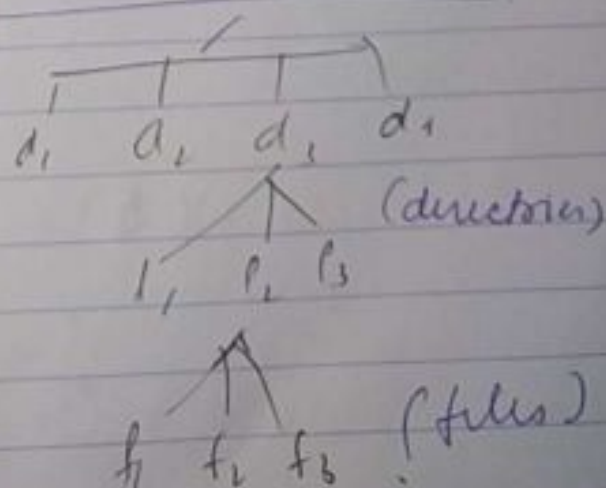 /
d₁ d₂ d₃ d₄
(directories)
P₁ P₂ P₃
f₁ f₂ f₃ (files)